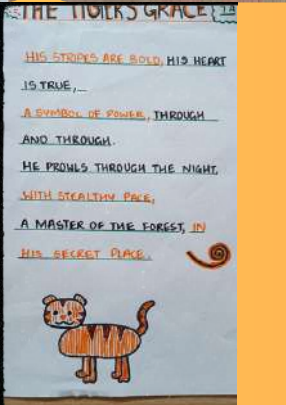 THE TIGERS GRACE
HIS STRIPES ARE BOLD, HIS HEART
IS TRUE,
A SYMBOL OF POWER, THROUGH
AND THROUGH.
HE PROWLS THROUGH THE NIGHT,
WITH STEALTHY PACE,
A MASTER OF THE FOREST, IN
HIS SECRET PLACE.